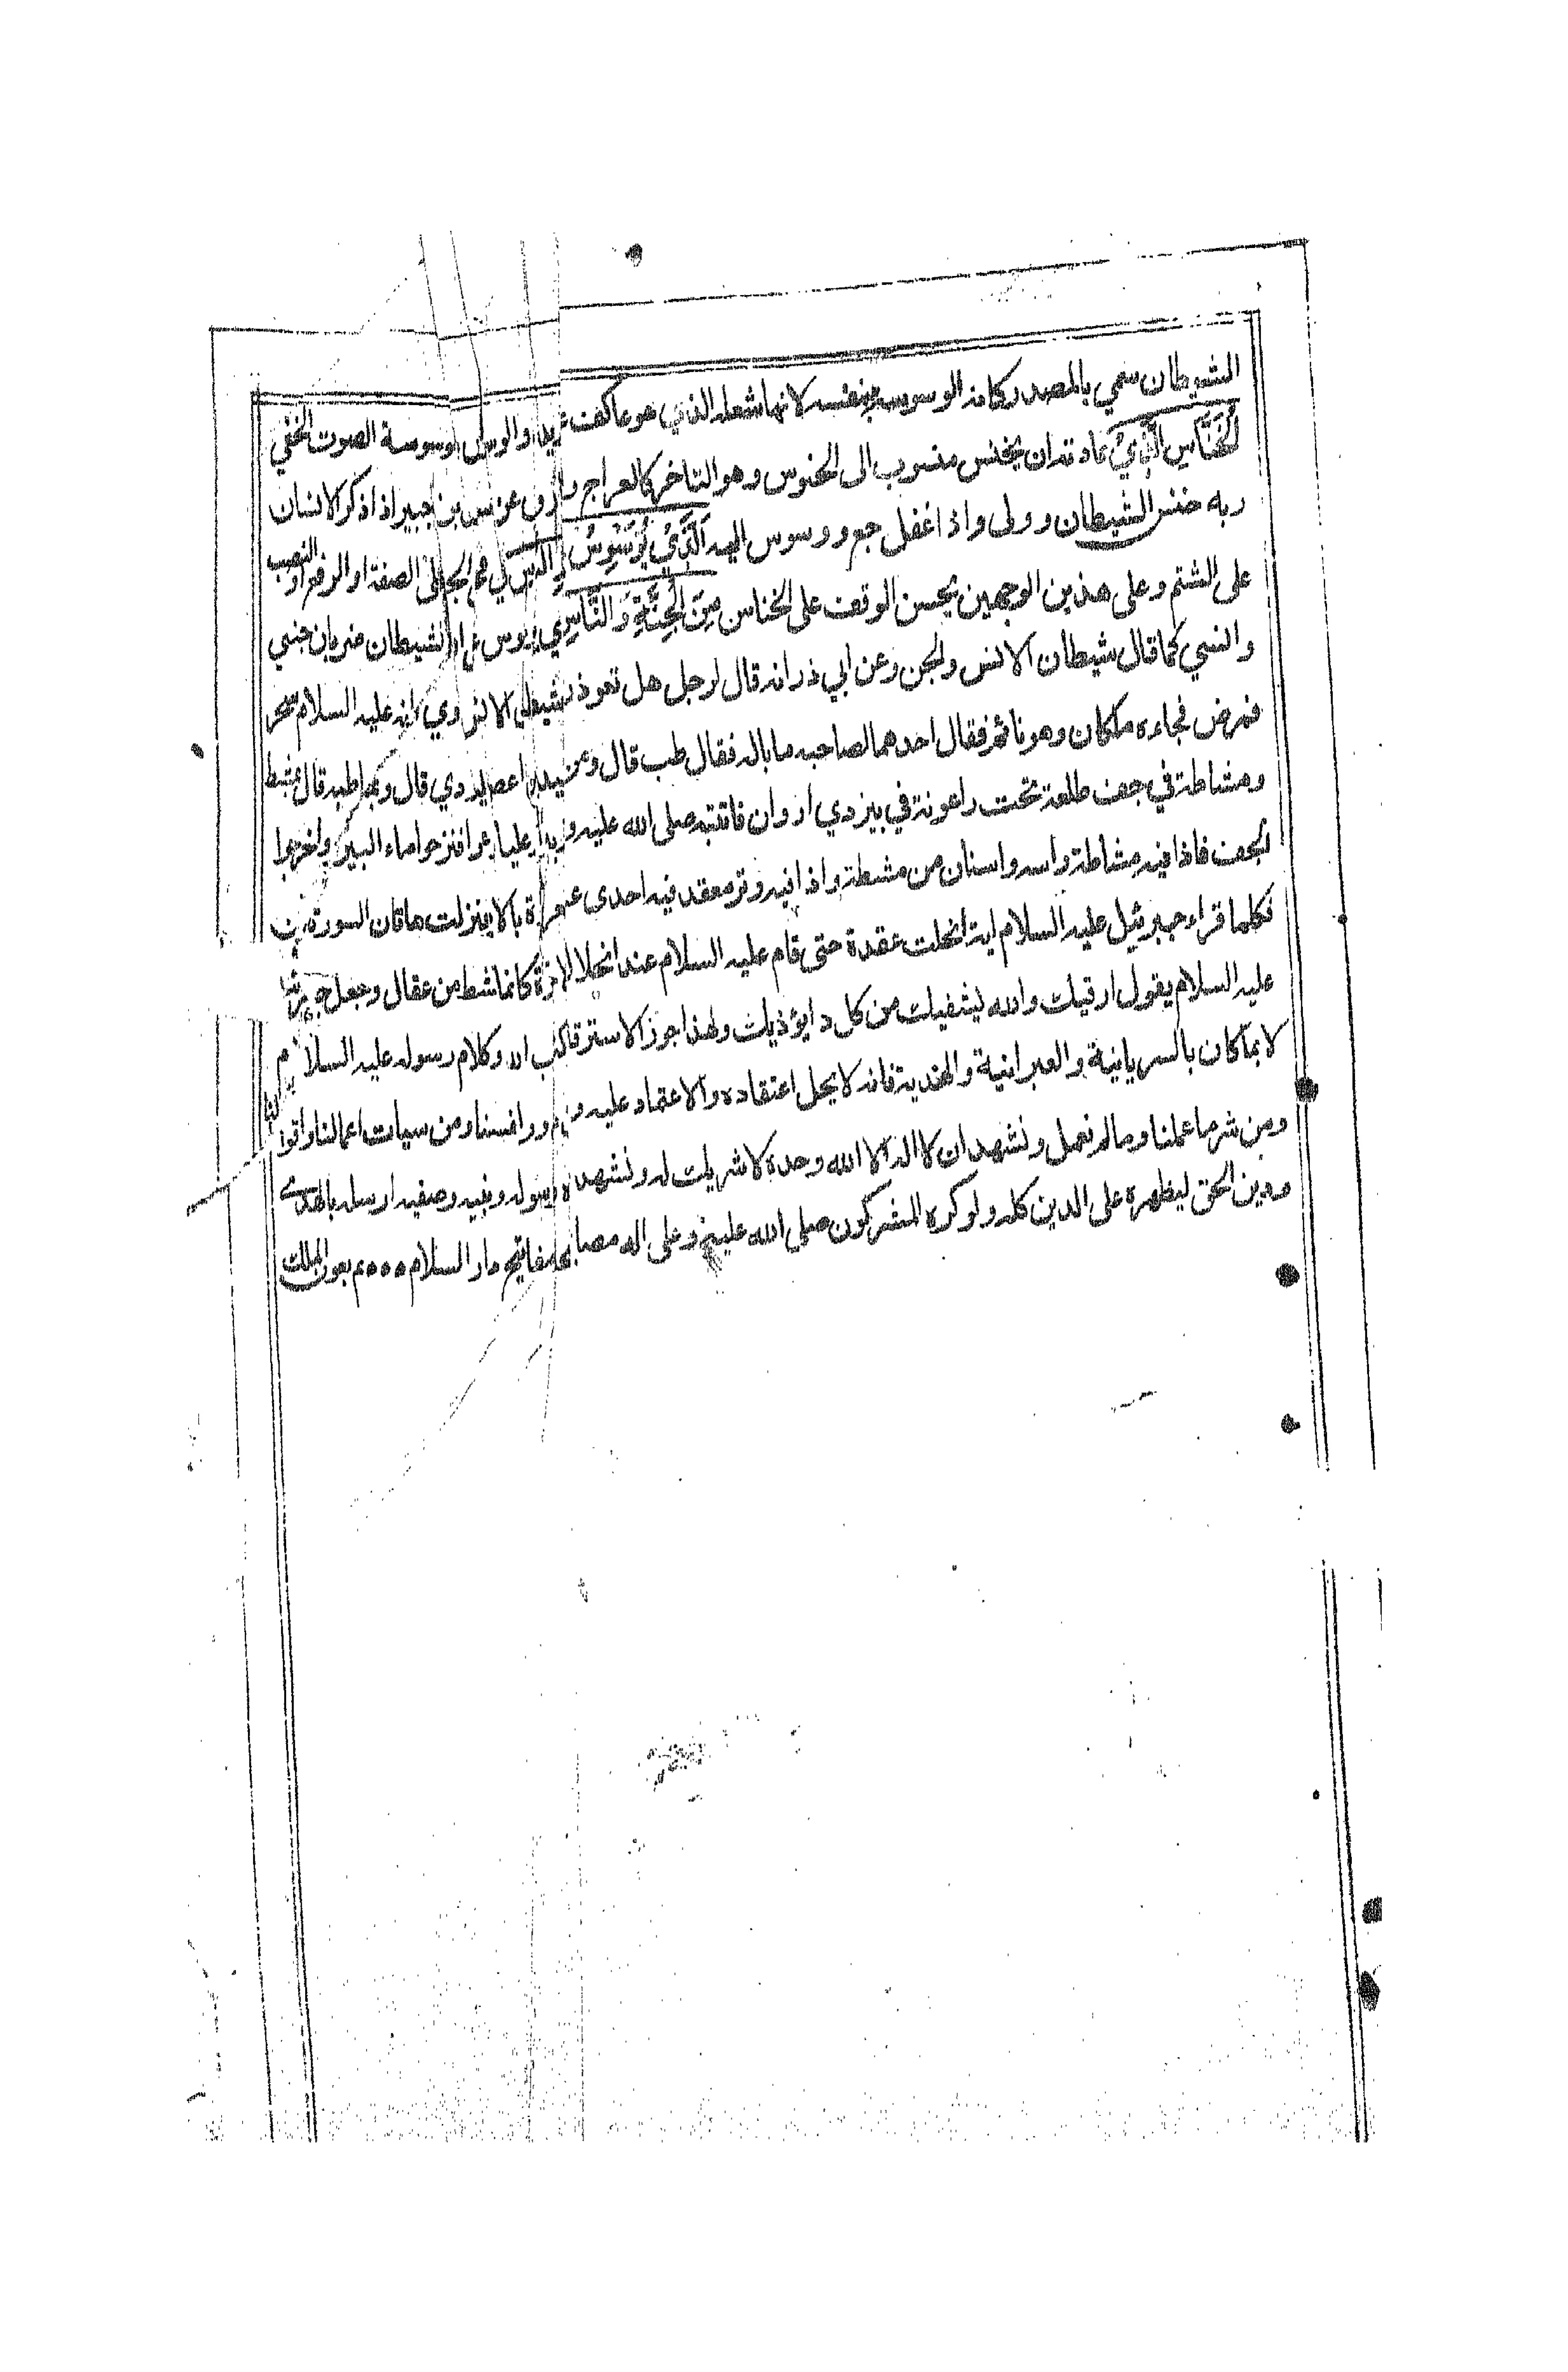 الشيطان سمي بالمصدر كانه الوسوسة بنفسه لانها شغله الذي هو عاكف عليه والوسوسة الصوت الخفي
الْخَنَّاسِ الَّذِيْ عادته ان يخنس منسوب الى الخنوس وهو التاخر كالعراج عن سعيد بن جبير اذا ذكر الانسان
ربه خنس الشيطان وولى واذا غفل رجع ووسوس اليه الَّذِيْ يُوَسْوِسُ في محل الجر على الصفة او الرفع او النصب
على الشتم وعلى هذين الوجهين يحسن الوقف على الخناس مِنَ الْجِنَّةِ وَالنَّاسِ الشيطان ضربان جني
والنسي كما قال شيطان الانس والجن وعن ابي ذر انه قال لرجل هل تعوذت الانس روي انه عليه السلام سحر
فمرض فجاءه ملكان وهو نائم فقال احدهما لصاحبه ما باله فقال طب قال ومن اعصم قال وبم طبه قال بمشط
ومشاطة في جف طلعة تحت راعونة في بير ذي اروان فانتبه صلى الله عليه و عليا فنزحوا ماء البير واخرجوا
الجف فاذا فيه مشاطة راسه واسنان من مشطة واذا فيه وتر معقد فيه احدى عشرة بالابر فنزلت هاتان السورتان
فكلما قراء جبرئيل عليه السلام اية انحلت عقدة حتى قام عليه السلام عند انحلال كانما نشط من عقال وجعل جبرئيل
عليه السلام يقول ارقيك والله يشفيك من كل داء يؤذيك ولهذا جوز الاسترقا الله وكلام رسوله عليه السلام
لا بما كان بالسريانية والعبرانية والهندية فانه لا يحل اعتقاده والاعتماد عليه انفسنا ومن سيات اعمالنا واقوالنا
ومن شر ما عملنا وما لم نعمل ونشهد ان لا اله الا الله وحده لا شريك له ونشهد رسوله ونبيه وصفيه ارسله بالهدى
ودين الحق ليظهره على الدين كله ولو كره المشركون صلى الله عليه وعلى اله مفاتيح دار السلام تم بعون الملك